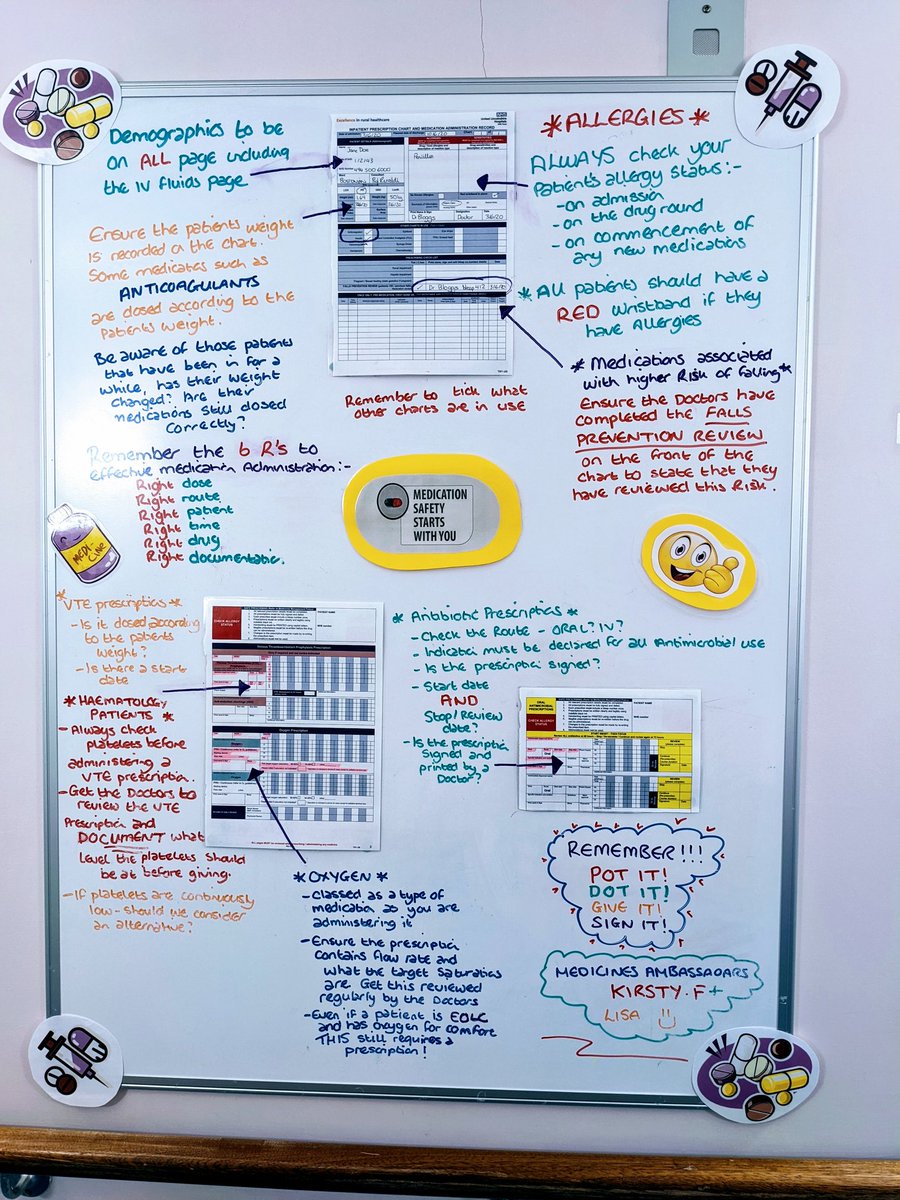 Demographics to be
on ALL page including
the IV fluids page
Ensure the patients weight
is recorded on the chart.
Some medicates such as
ANTICOAGULANTS
are dosed according to the
Patients weight.
Be aware of those patients
that have been in for a
while, has their weight
changed? Are their
medications still dosed
correctly?
Excellence in rural healthcare
NHS
INPATIENT PRESCRIPTION CHART AND MEDICATION ADMINISTRATION RECORD
Jane Doe
Penicillin
Dr Bloggs
Remember to tick what
other charts are in use
*ALLERGIES*
ALWAYS check your
Patient's allergy status:-
- on admission
- on the drug round
- on commencement of
any new medications
* All patients should have a
RED wristband if they
have Allergies
*Medications associated
with higher Risk of falling*
Ensure the Doctors have
completed the FALLS
PREVENTION REVIEW
on the front of the
chart to state that they
have reviewed this Risk.
Remember the 6 R's to
effective medication Administration:-
Right dose
Right route
Right patient
Right time
Right drug
Right documentation.
MEDI-
CINE
MEDICATION
SAFETY
STARTS
WITH YOU
*VTE prescriptions*
- Is it dosed according
to the patients
weight?
- Is there a start
date
*HAEMATOLOGY
PATIENTS *
- Always check
platelets before
administering a
VTE prescription.
- Get the Doctors to
review the VTE
Prescription and
DOCUMENT what
level the platelets should
be at before giving.
- If platelets are continuously
low - should we consider
an alternative?
CHECK ALLERGY
STATUS
Oxygen Prescription
* Anibiotic Prescriptions *
- Check the Route - ORAL? IV?
- Indication must be declared for all Antimicrobial use
- Is the prescription signed?
- Start date
AND
Stop/Review
date?
- Is the prescription
Signed and
printed by a
Doctor?
ORAL
ANTIMICROBIAL
PRESCRIPTIONS
CHECK ALLERGY
STATUS
REVIEW
REVIEW
*OXYGEN*
- Classed as a type of
medication as you are
administering it
- Ensure the prescription
contains flow rate and
what the target Saturations
are. Get this reviewed
regularly by the Doctors
- Even if a patient is EOLC
and has oxygen for comfort
THIS still requires a
prescription!
REMEMBER!!!
POT IT!
DOT IT!
GIVE IT!
SIGN IT!
MEDICINES AMBASSADARS
KIRSTY.F +
LISA